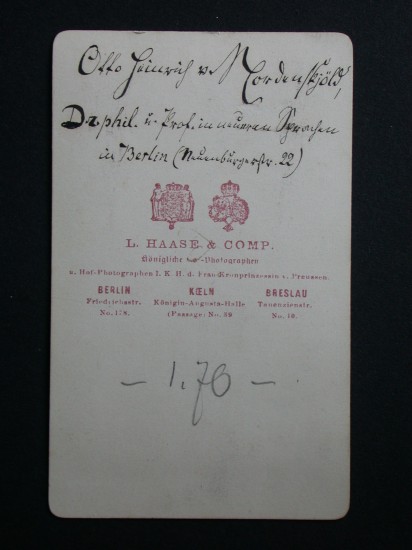 Otto Heinrich v. Nordenskjöld,
Dr. phil. u. Prof. in neueren Sprachen
in Berlin (Neuenburgerstr. 22)
L. HAASE & COMP.
Königliche Hof-Photographen
u. Hof-Photographen I. K. H. d. Frau Kronprinzessin v. Preussen.
BERLIN KŒLN BRESLAU
Friedrichsstr. Königin-Augusta-Halle Tauenzienstr.
No. 178. (Passage) No.
No.
- 1.76 -